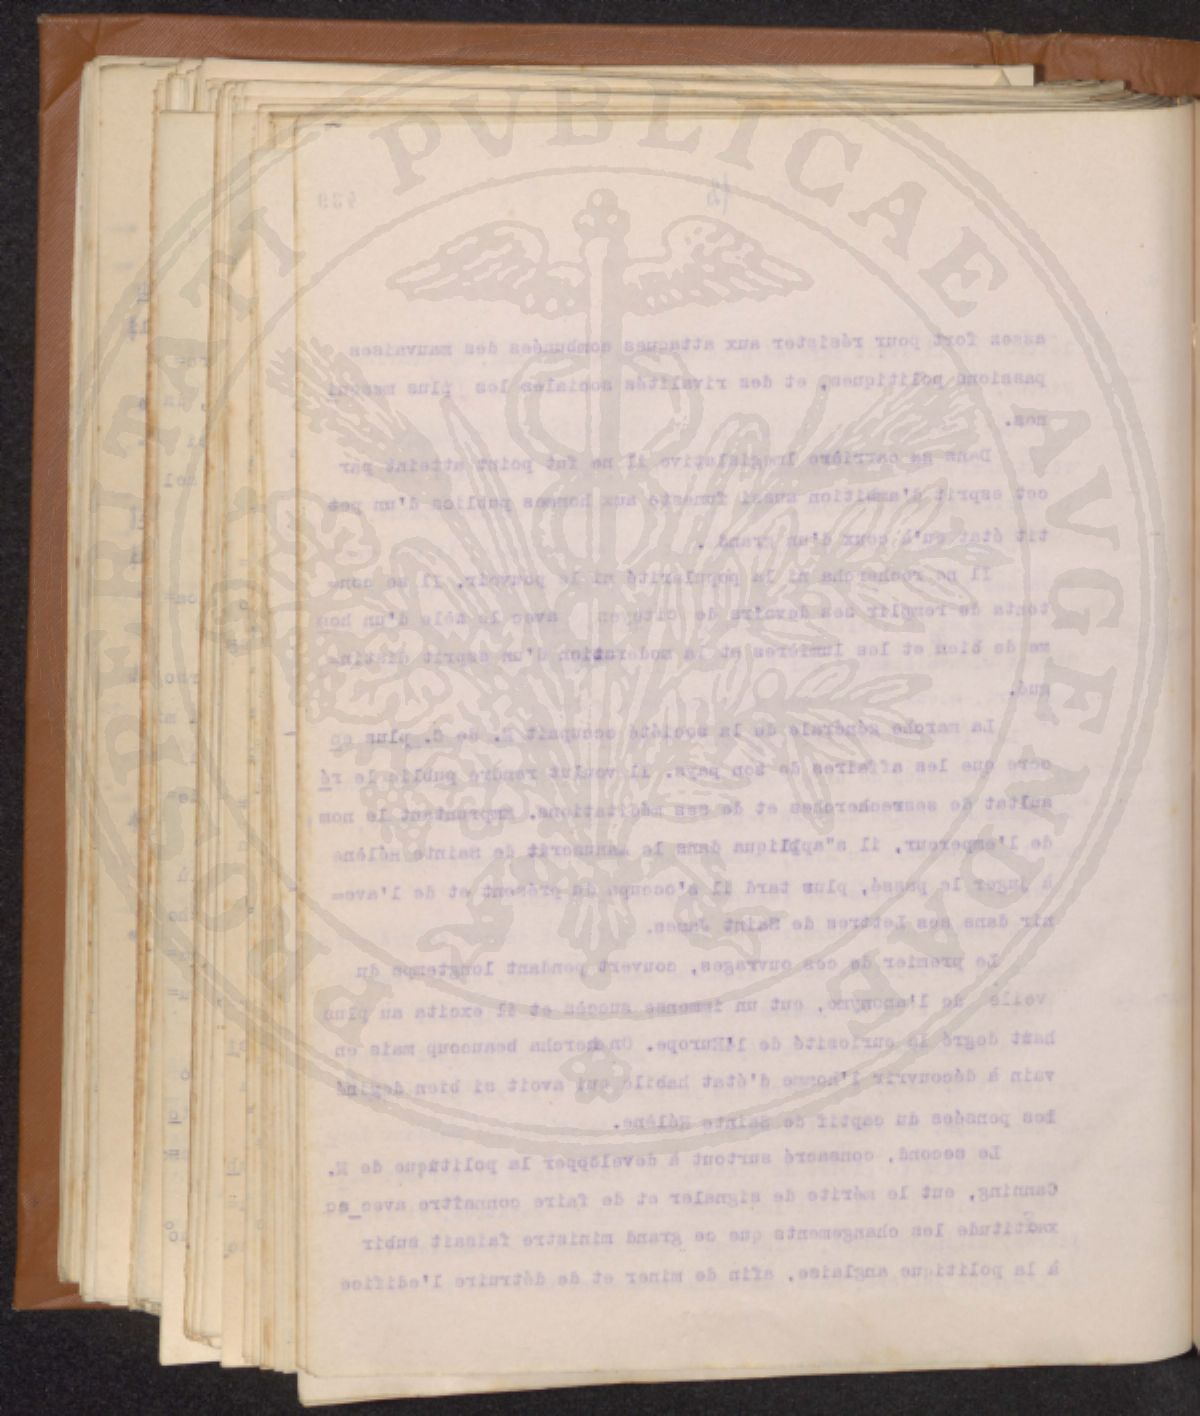 POSTERITATI PVBLICAE AVGENDAE
439
assez fort pour résister aux attaques combunées des mauvaises
passions politiques, et des rivalités sociales les plus mesqui
nes.
Dans sa carrière lregislative il ne fut point atteint par
cet esprit d'ambition aussi funeste aux hommes publics d'un pet
tit état qu'à ceux d'un grand .
Il ne rechercha ni la popularité ni le pouvoir, Il se con-
tenta de remplir ses devoirs de citoyen avec le zèle d'un hom
me de bien et les lumières et la moderation d'un esprit distin-
gué.
La marche générale de la société occupait M. de C. plus en
ocre que les affaires de son pays. il voulut rendre public le ré
sultat de sesrecherches et de ses méditations. Empruntant le nom
de l'empereur, il s"appliqua dans le Manuscrit de Sainte Hélène
à juger le passé, plus tard il s'occupa du présent et de l'ave-
nir dans ses Lettres de Saint James.
Le premier de ces ouvrages, couvert pendant longtemps du
veile de l'anonyme, eut un immense succès et il excita au plus
haut degré la curiosité de l'Europe. On chercha beaucoup mais en
vain à découvrir l'homme d'état habile qui avoit si bien deginé
les pensées du captif de Sainte Hélène.
Le second, consacré surtout à developper la politique de M.
Canning, eut le mérite de signaler et de faire connaitre avec
xactitude les changements que ce grand ministre faisait subir
à la politique anglaise, afin de miner et de détruire l'edifice